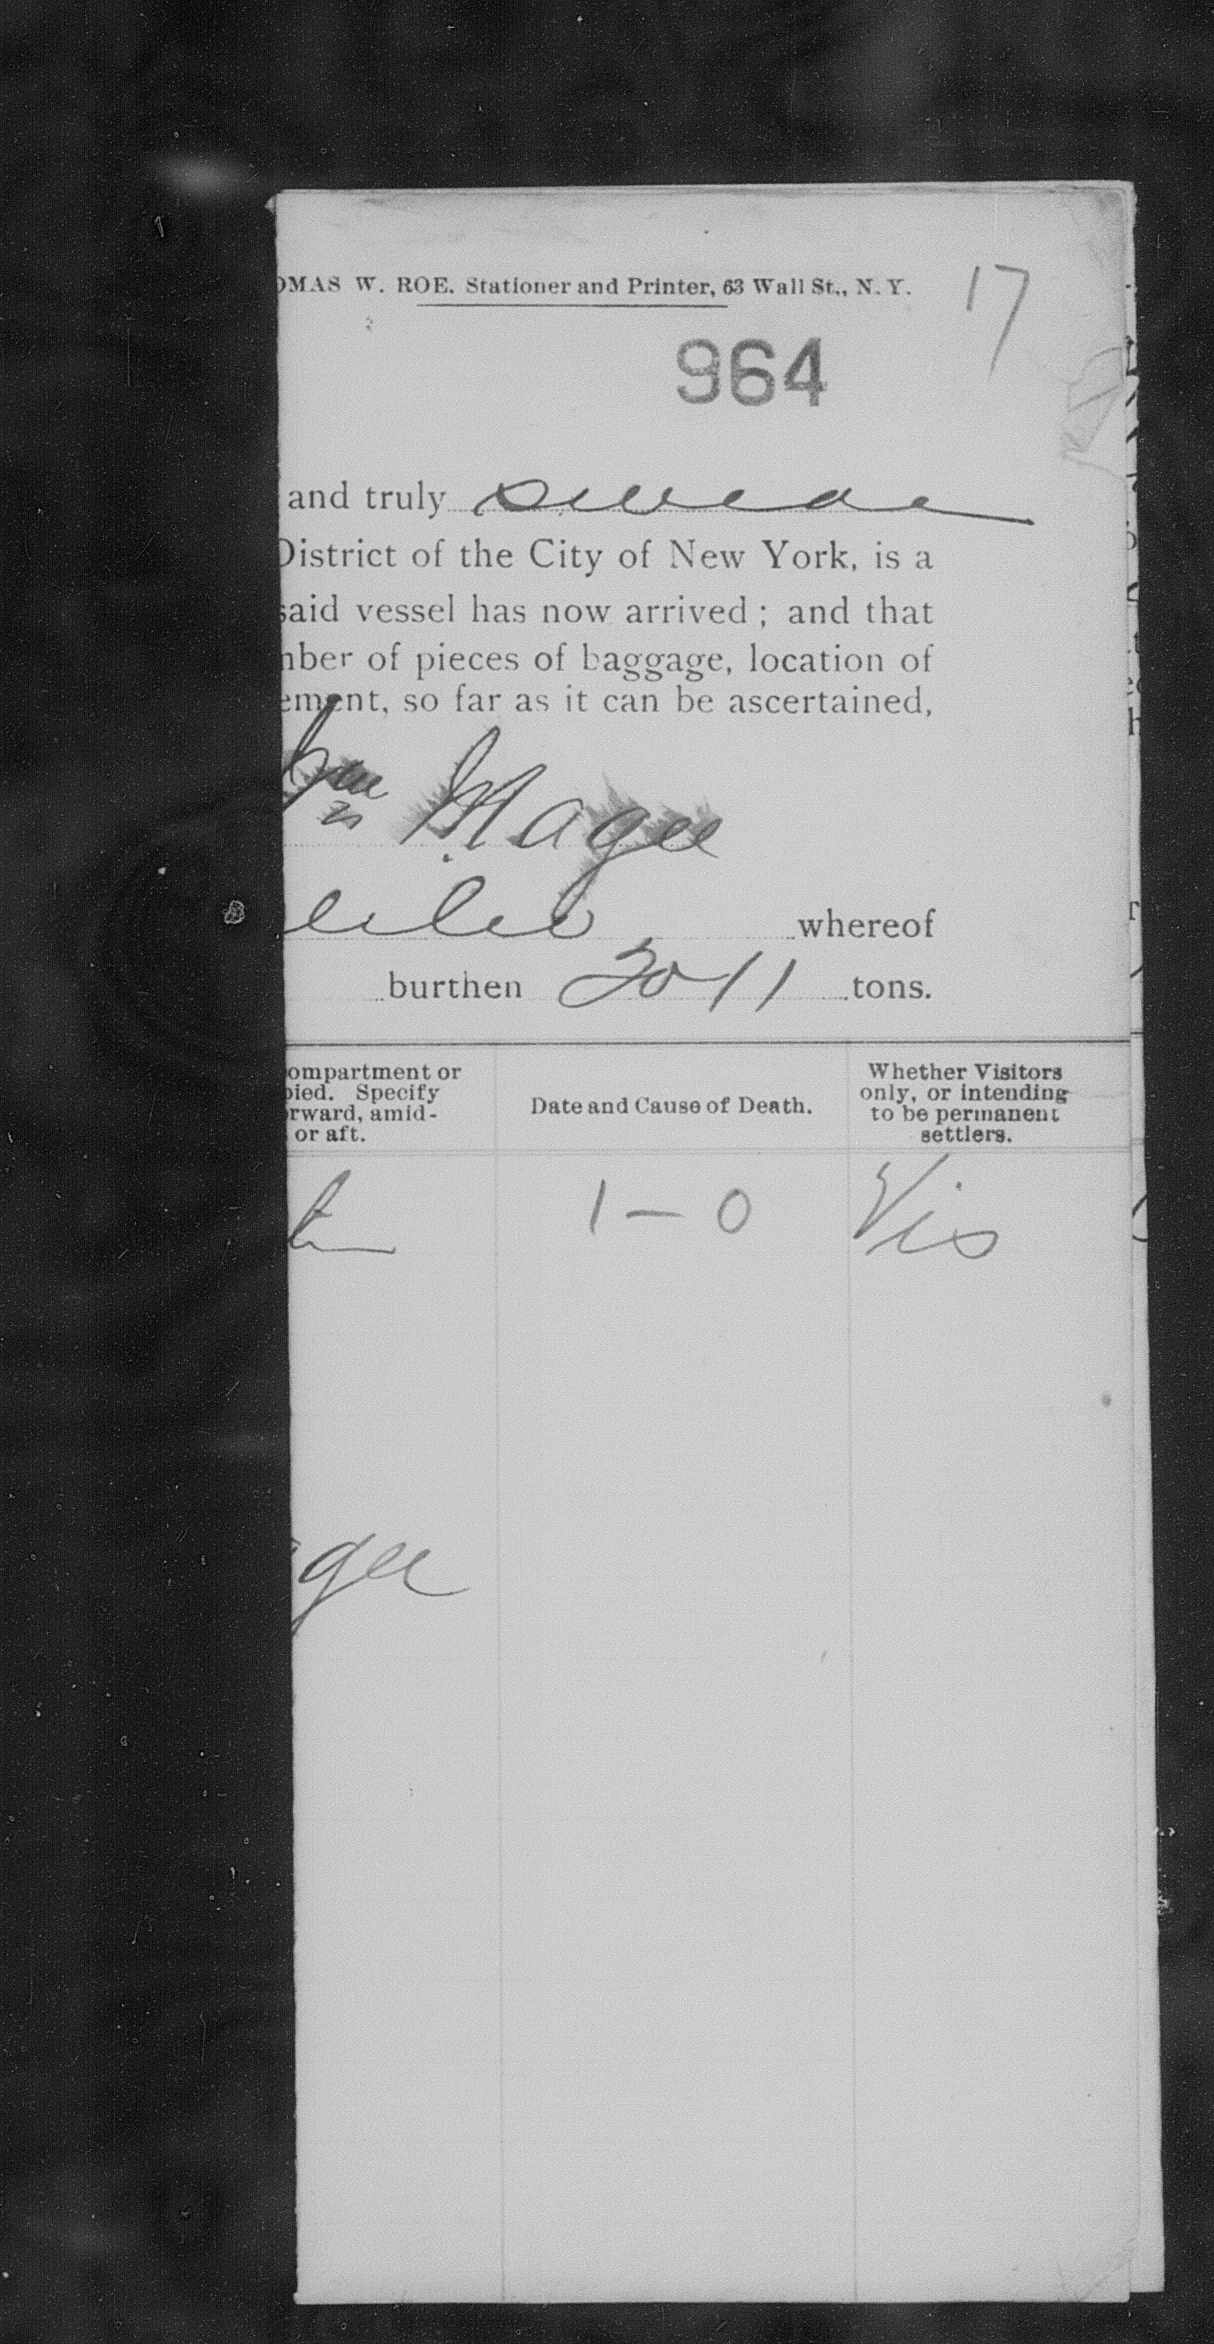 OMAS W. ROE. Stationer and Printer, 63 Wall St., N. Y.
17
964
and truly swear
District of the City of New York, is a
said vessel has now arrived ; and that
nber of pieces of baggage, location of
ement, so far as it can be ascertained,
Wm Magee
whereof
burthen 3011 tons.
ompartment or
pied. Specify
orward, amid-
or aft.
Date and Cause of Death.
Whether Visitors
only, or intending
to be permanent
settlers.
1 - 0 Vis
gee